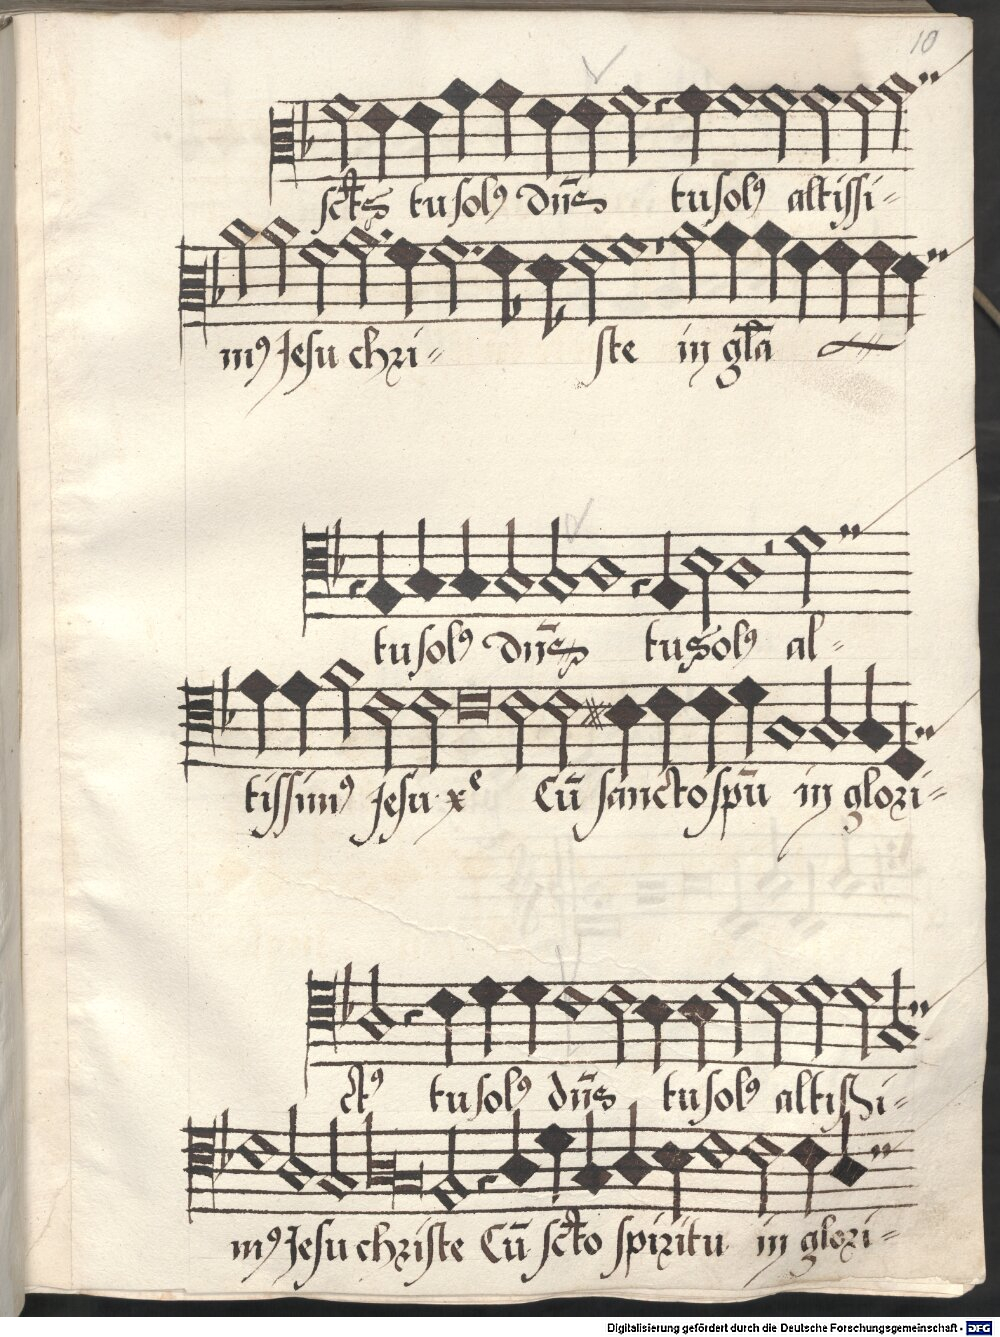 10
sct͛s tu solꝰ dn̄s tu solꝰ altissi-
mꝰ Jesu chri- ste in gl̄a
tu solꝰ dn̄s tu solꝰ al-
tissimꝰ Jesu xᵉ Cū sancto spū in glori-
ctꝰ tu solꝰ dn̄s tu solꝰ altissi-
mꝰ Jesu christe Cū sct͛o spiritu in glori-
Digitalisierung gefördert durch die Deutsche Forschungsgemeinschaft - DFG